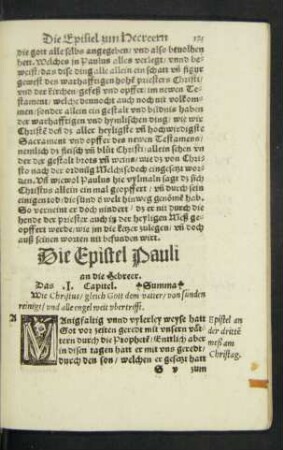 Die Epistel zum Hebreern 174
die gott alle selbs angegeben/ vnd also bevolhen
hett. Welches im Paulus alles verlegt/ vnnd be-
weißt/ das dise ding alle allein ein schatt vñ figur
geweßt den warhafftigen hohē priesters Christi/
vnd der kirchen/ gesetz vnd opffer/ im newen Te-
stament/ welche dennocht auch noch nit volkom-
men/ sonder allein ein gestalt vnd bildniß haben
der warhafftigen vnd hymlischen ding/ wie wir
Christē deß dz aller heyligste vñ hochwirdigste
Sacrament vnd opffer des newen Testamenn/
nemlich dz fleisch vñ blůt Christi/ allein sehen vn
der der gestalt brots vñ weins/ wie dz von Chri-
sto nach der ordnūg Melchisedech eingesetzt wor-
den. Vñ wiewol Paulus hie vylmaln sagt dz sich
Christus allein ein mal geopffert/ vñ durch sein
einigen tod/ die sünd d welt hinweg genomē hab.
So verneint er doch nindert/ dz er nit durch die
hende der priester auch in der heyligen Meß geopf-
fert werde/ wie jm die ketzer zulegen/ vñ doch
auß seinen worten nit befunden wirt.
Die Epistel Pauli
an die Hebreer.
Das .I. Capitel. Summa
Wie Christus/ gleich Gott dem vatter/ von sünden
reinigt/ vnd alle engel weit vbertrifft.
A MAnigfaltig vnnd vylerley weyse hatt
Got vor zeiten geredt mit vnsern vät-
tern durch die Prophetē/ Entlich aber
in disen tagen hatt er mit vns geredt/
durch den son/ welchen er gesetzt hatt
Epistel an
der dritte
meß am
Christag.
S v zum